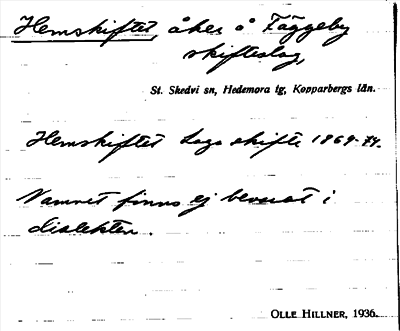 Hemskiftet, åker å Fäggeby
skifteslag,
St. Skedvi sn, Hedemora tg, Kopparbergs län.
Hemskiftet Laga skifte 1864-74.
Namnet finns ej bevarat i
dialekten.
OLLE HILLNER, 1936.